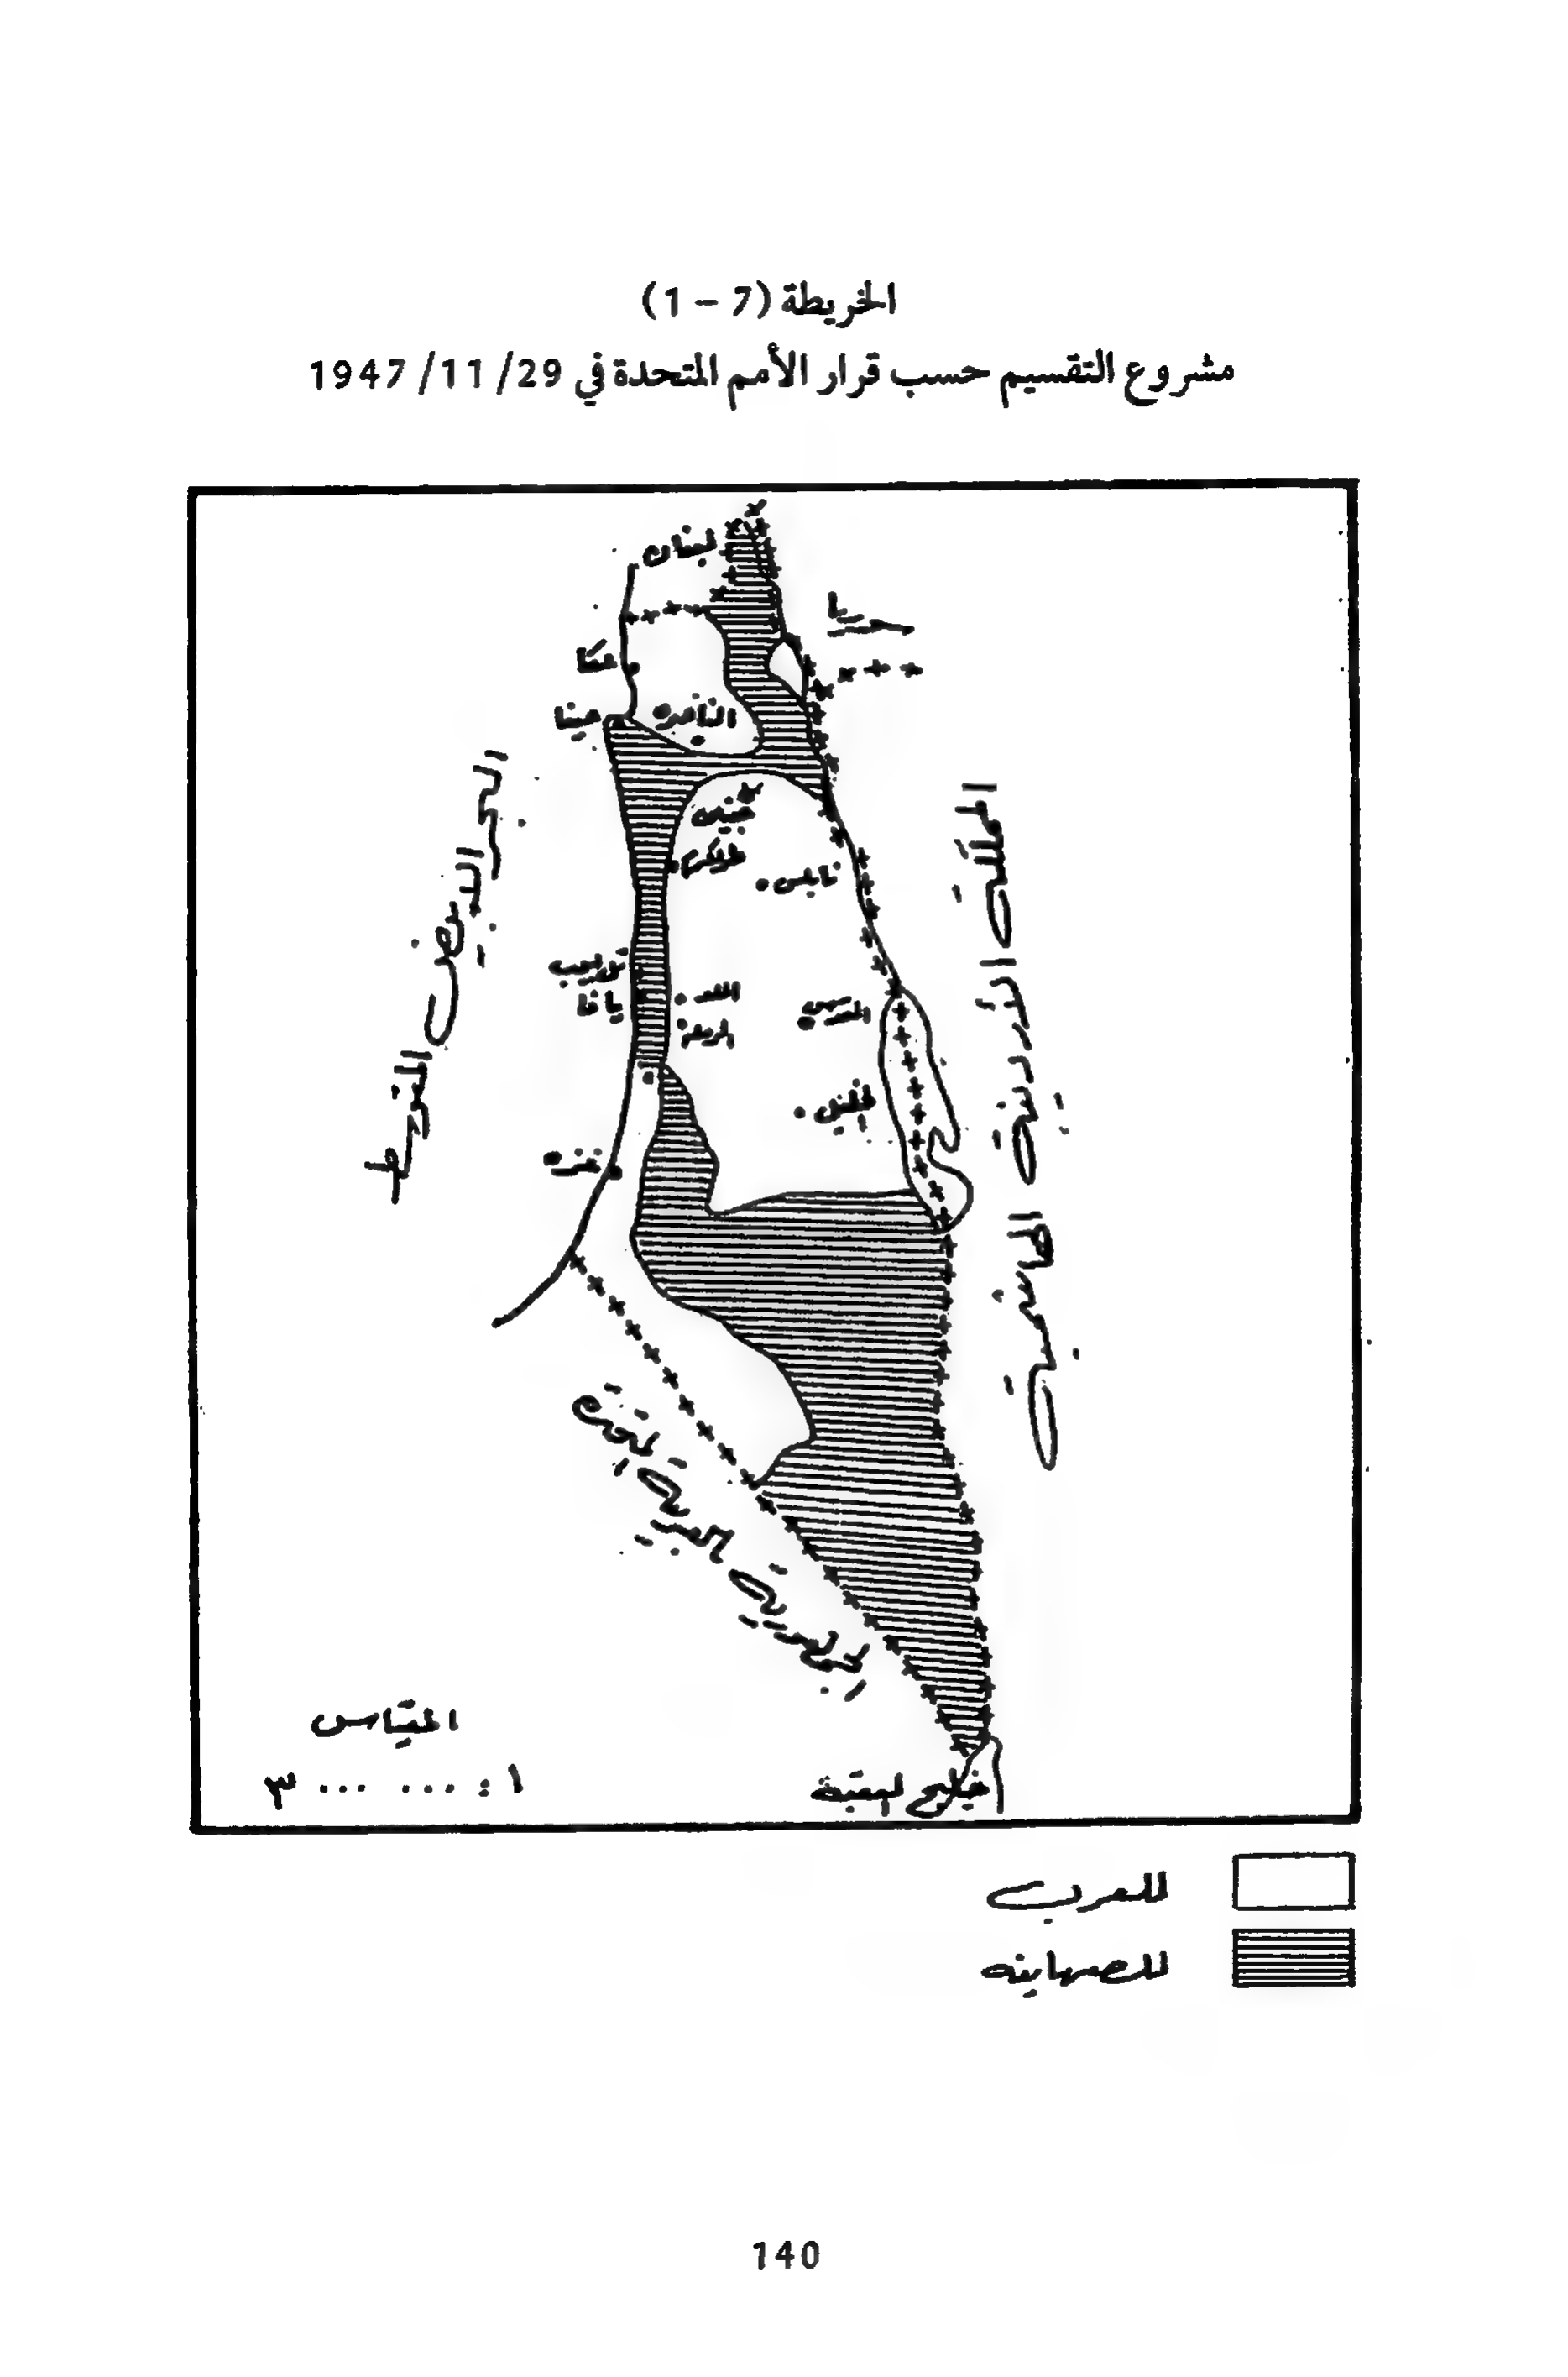 الخريطة (7 – 1)
مشروع التقسيم حسب قرار الأمم المتحدة في 29/ 11/ 1947
لبنان
سوريا
عكا
حيفا
الناصره
جنين
طولكرم
نابلس
تل ابيب
يافا
اللد
الرمله
القدس
الخليل
غزه
البحر الابيض المتوسط
المملكة الأردنية الهاشمية
الجمهورية العربية المتحدة
خليج العقبة
المقياس
١ : ... ... ٣
للعرب
للصهاينه
140